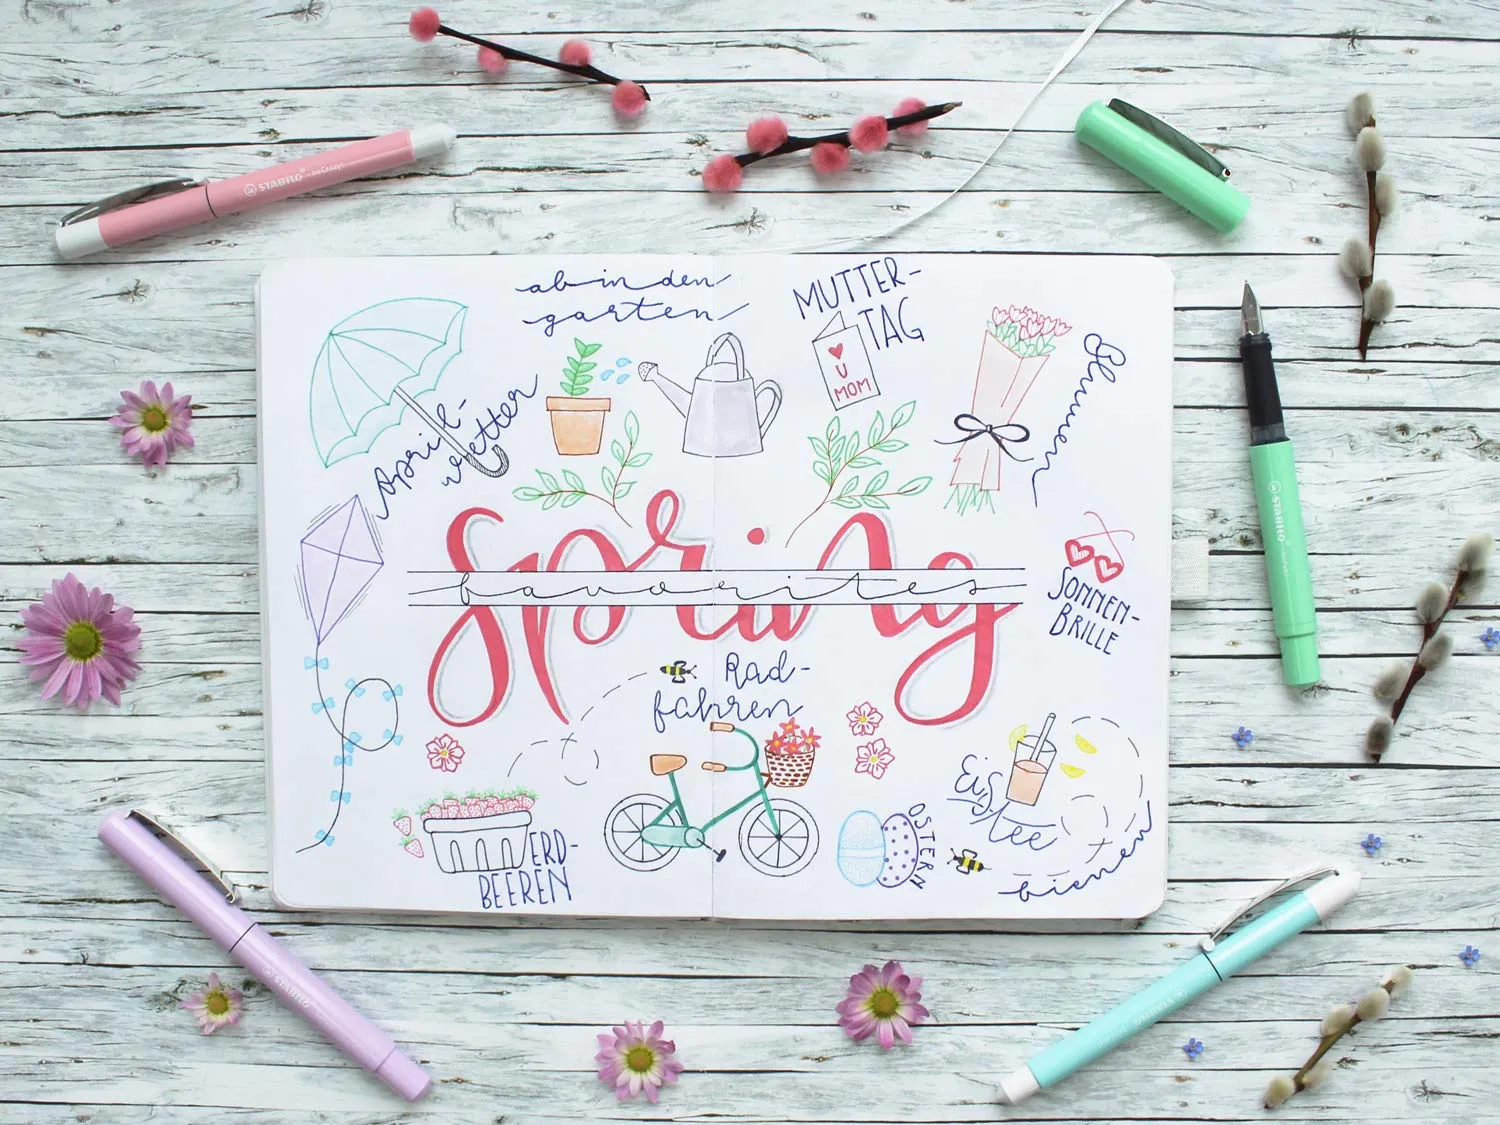 STABILO beCrazy!
ab in den
garten
MUTTER-
TAG
♥
U
MOM
Blumen
April-
wetter
spring
favorites
SONNEN-
BRILLE
Rad-
fahren
EIS
TEE
ERD-
BEEREN
OSTERN
bienen
STABILO
STABILO